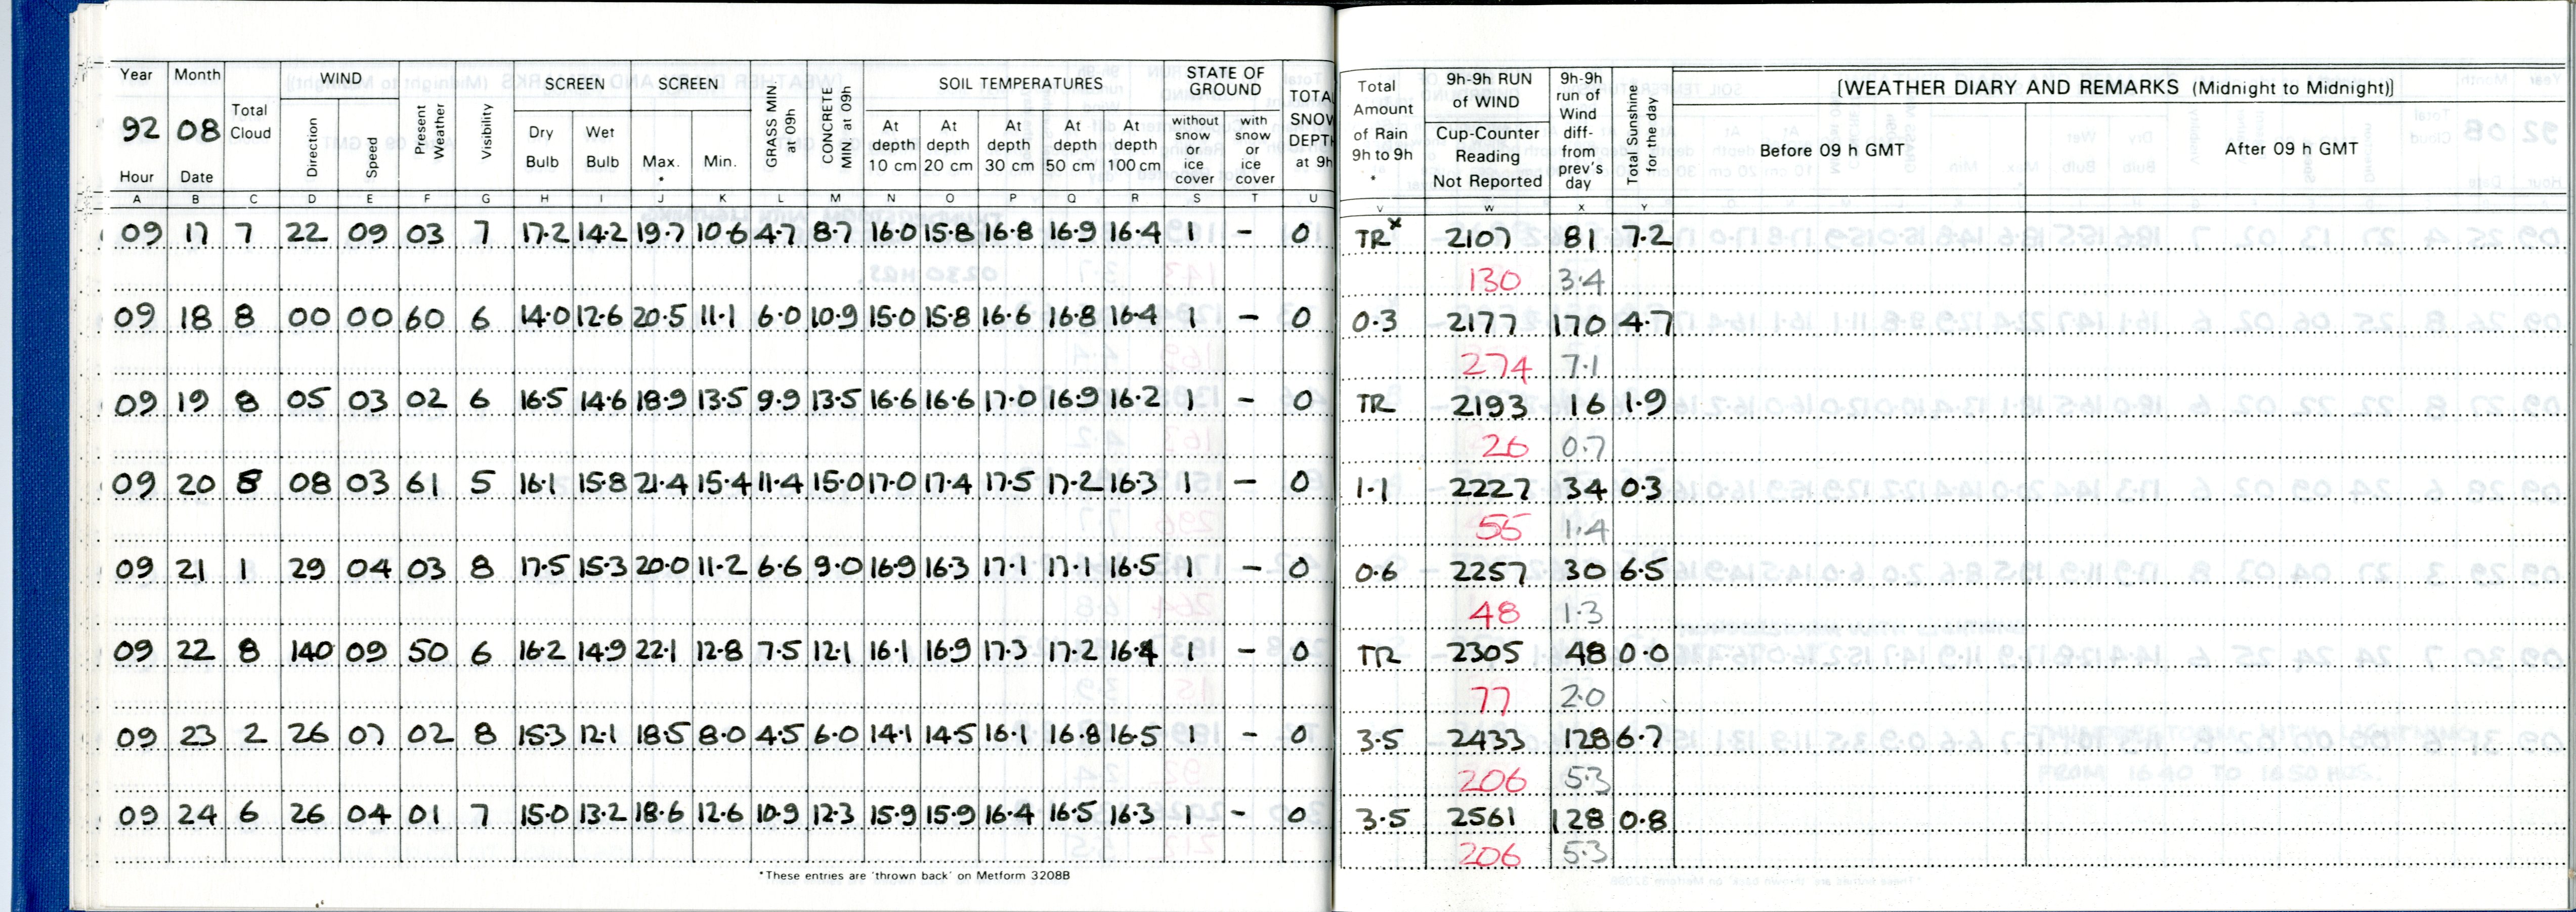 Year Month Total Cloud WIND Present Weather Visibility SCREEN SCREEN GRASS MIN. at 09h CONCRETE MIN. at 09h SOIL TEMPERATURES STATE OF GROUND TOTAL SNOW DEPTH at 9h Total Amount of Rain 9h to 9h * 9h-9h RUN of WIND 9h-9h run of Wind diff- from prev's day Total Sunshine for the day [WEATHER DIARY AND REMARKS (Midnight to Midnight)]
92 08 Direction Speed Dry Bulb Wet Bulb Max. * Min. At depth 10 cm At depth 20 cm At depth 30 cm At depth 50 cm At depth 100 cm without snow or ice cover with snow or ice cover Cup-Counter Reading Not Reported Before 09 h GMT After 09 h GMT
Hour Date
A B C D E F G H I J K L M N O P Q R S T U V W X Y
09 17 7 22 09 03 7 17.2 14.2 19.7 10.6 4.7 8.7 16.0 15.8 16.8 16.9 16.4 1 – 0 TR* 2107 81 7.2
130 3.4
09 18 8 00 00 60 6 14.0 12.6 20.5 11.1 6.0 10.9 15.0 15.8 16.6 16.8 16.4 1 – 0 0.3 2177 170 4.7
274 7.1
09 19 8 05 03 02 6 16.5 14.6 18.9 13.5 9.9 13.5 16.6 16.6 17.0 16.9 16.2 1 – 0 TR 2193 16 1.9
26 0.7
09 20 8 08 03 61 5 16.1 15.8 21.4 15.4 11.4 15.0 17.0 17.4 17.5 17.2 16.3 1 – 0 1.1 2227 34 0.3
55 1.4
09 21 1 29 04 03 8 17.5 15.3 20.0 11.2 6.6 9.0 16.9 16.3 17.1 17.1 16.5 1 – 0 0.6 2257 30 6.5
48 1.3
09 22 8 140 09 50 6 16.2 14.9 22.1 12.8 7.5 12.1 16.1 16.9 17.3 17.2 16.4 1 – 0 TR 2305 48 0.0
77 2.0
09 23 2 26 07 02 8 15.3 12.1 18.5 8.0 4.5 6.0 14.1 14.5 16.1 16.8 16.5 1 – 0 3.5 2433 128 6.7
206 5.3
09 24 6 26 04 01 7 15.0 13.2 18.6 12.6 10.9 12.3 15.9 15.9 16.4 16.5 16.3 1 – 0 3.5 2561 128 0.8
206 5.3
*These entries are 'thrown back' on Metform 3208B